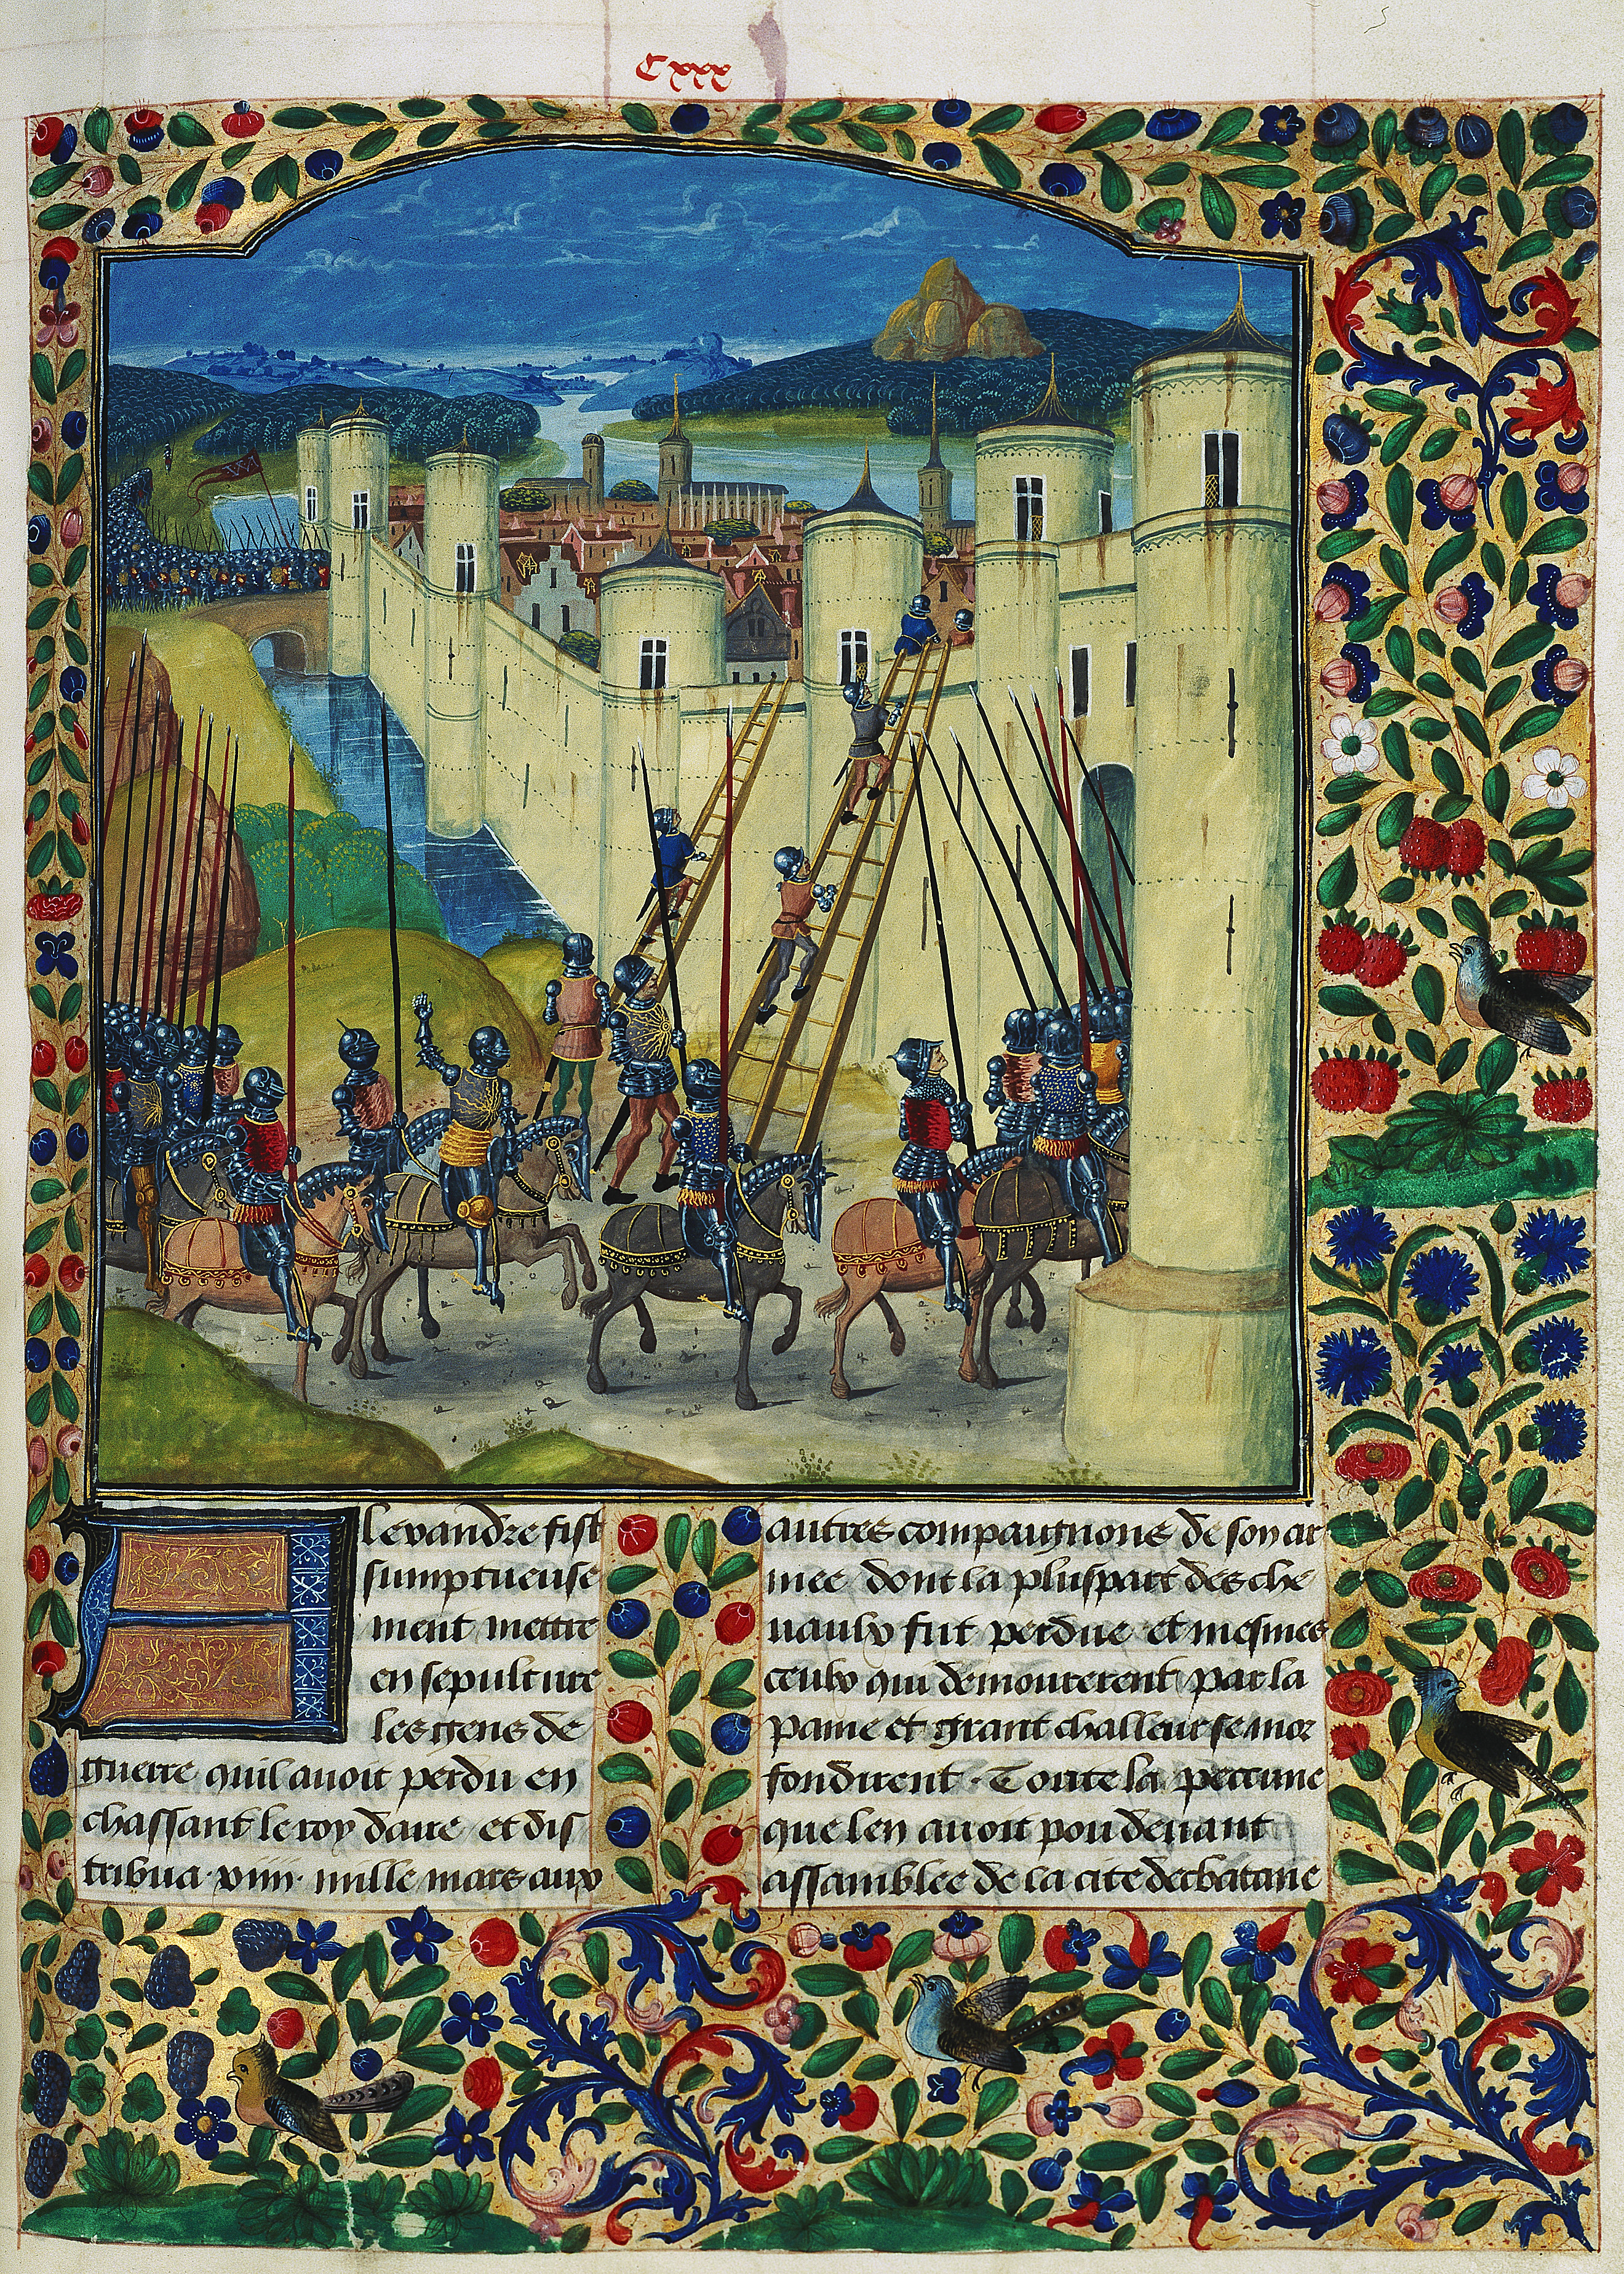 Cxxx
Alexandre fist
sumptueuse
ment mettre
en sepulture
les gens de
guerre quil auoit perdu en
chassant le roy daire et dis
tribua .xiiii. mille mars aux
autres compaignons de son ar
mee dont la pluspart des che
uaulx fut perdue et mesmes
ceulx qui demourerent par la
paine et grant challeur se mor
fondirent . Toute la peccune
que len auoit peu deuant
assamblee de la cite dechatane